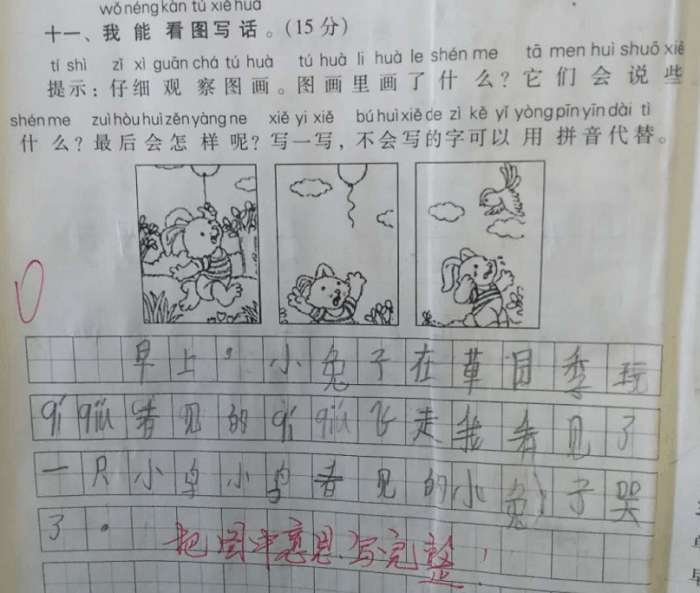 wǒ néng kàn tú xiě huà
十一、我能看图写话。(15分)
tí shì zǐ xì guān chá tú huà tú huà lǐ huà le shén me tā men huì shuō xiē
提示：仔细观察图画。图画里画了什么？它们会说些
shén me zuì hòu huì zěn yàng ne xiě yi xiě bú huì xiě de zì kě yǐ yòng pīn yīn dài tì
什么？最后会怎样呢？写一写，不会写的字可以用拼音代替。
早上，小兔子在草园季玩
qí qiú 看见的 qí qiú 飞走我看见了
一只小鸟小鸟看见的小兔子哭
了。
把图中意思写完整！